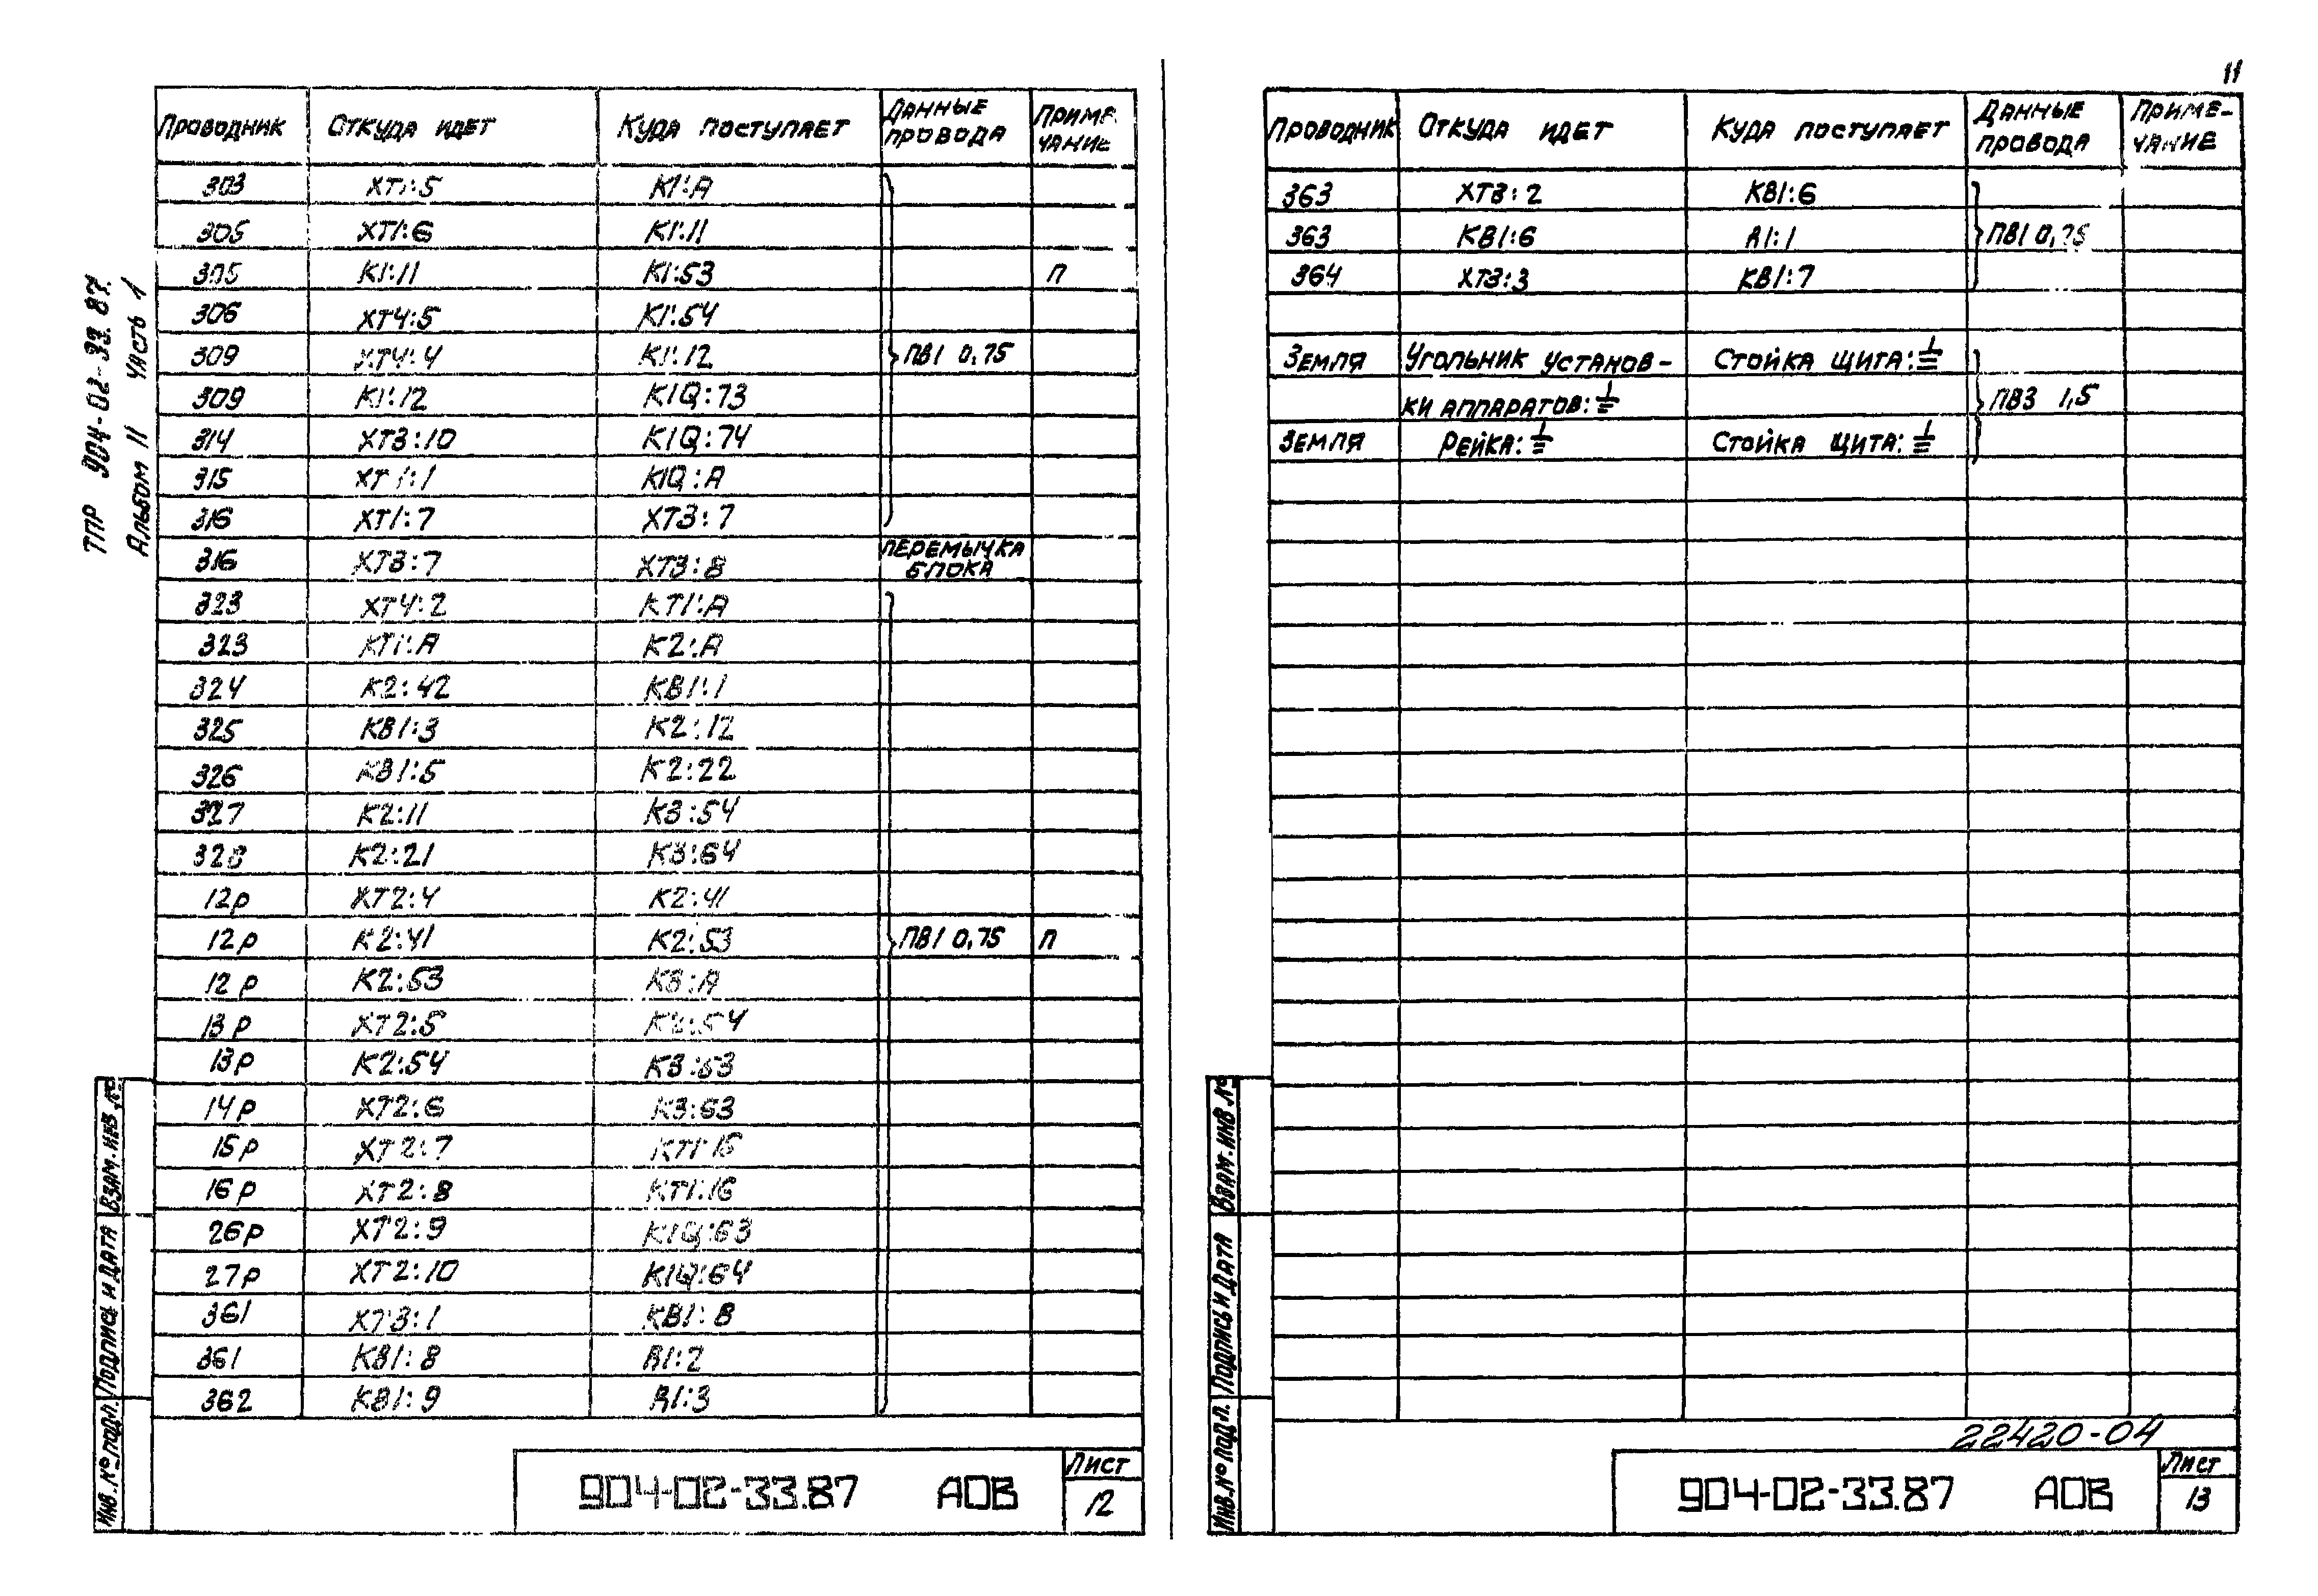 11
ТПР 904-02-33.87.
Альбом II часть 1
Проводник Откуда идет Куда поступает Данные провода Примечание
303 ХТ1:5 К1:А
305 ХТ1:6 К1:11
305 К1:11 К1:53 П
306 ХТ4:5 К1:54
309 ХТ4:4 К1:12 ПВ1 0,75
309 К1:12 К1Q:73
314 ХТ3:10 К1Q:74
315 ХТ1:1 К1Q:А
316 ХТ1:7 ХТ3:7
316 ХТ3:7 ХТ3:8 Перемычка блока
323 ХТ4:2 КТ1:А
323 КТ1:А К2:А
324 К2:42 КВ1:1
325 КВ1:3 К2:12
326 КВ1:5 К2:22
327 К2:11 К3:54
328 К2:21 К3:64
12р ХТ2:4 К2:41
12р К2:41 К2:53 ПВ1 0,75 П
12р К2:53 К3:А
13р ХТ2:5 К2:54
13р К2:54 К3:53
14р ХТ2:6 К3:63
15р ХТ2:7 КТ1:15
16р ХТ2:8 КТ1:16
26р ХТ2:9 К1Q:63
27р ХТ2:10 К1Q:64
361 ХТ3:1 КВ1:8
361 КВ1:8 R1:2
362 КВ1:9 R1:3
Инв.№подл. Подпись и дата Взам.инв.№
904-02-33.87 АОВ
Лист
12
Проводник Откуда идет Куда поступает Данные провода Примечание
363 ХТ3:2 КВ1:6
363 КВ1:6 R1:1 ПВ1 0,75
364 ХТ3:3 КВ1:7
Земля Угольник установ- Стойка щита:⏚
ки аппаратов:⏚ ПВ3 1,5
Земля Рейка:⏚ Стойка щита:⏚
Инв.№подл. Подпись и дата Взам.инв.№
22420-04
904-02-33.87 АОВ
Лист
13